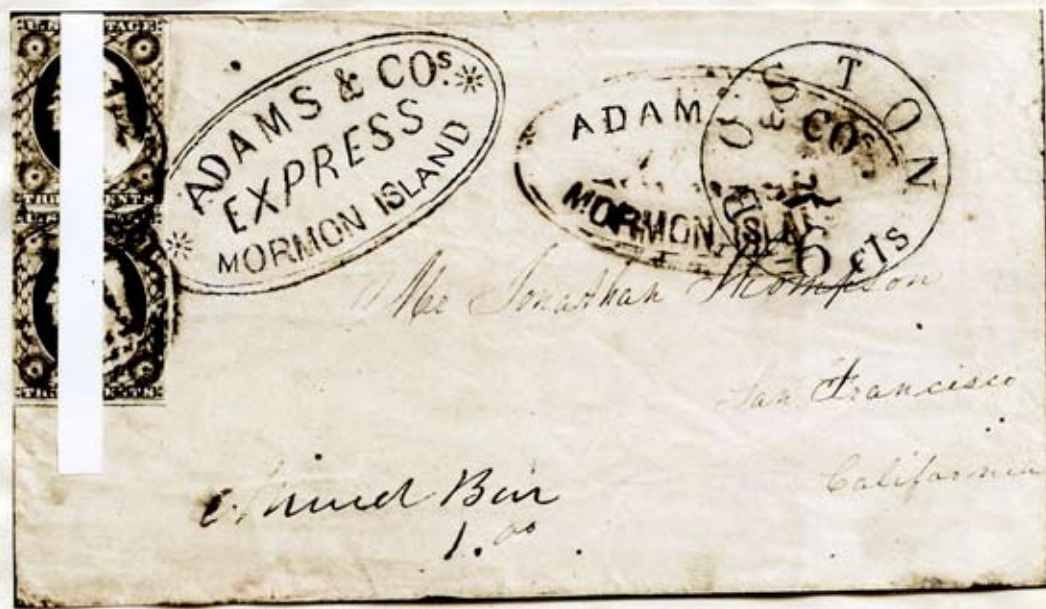 ADAMS & COs.
EXPRESS
MORMON ISLAND
ADAM COs
MORMON ISLA
BOSTON
6 cts
Mr Jonathan Thompson
San Francisco
California
1.00